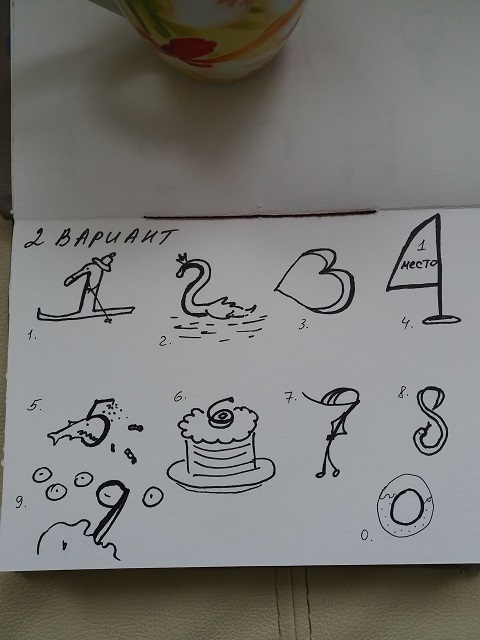 2 ВАРИАНТ
1.
2.
3.
4.
1
место
5.
6.
7.
8.
9.
0.